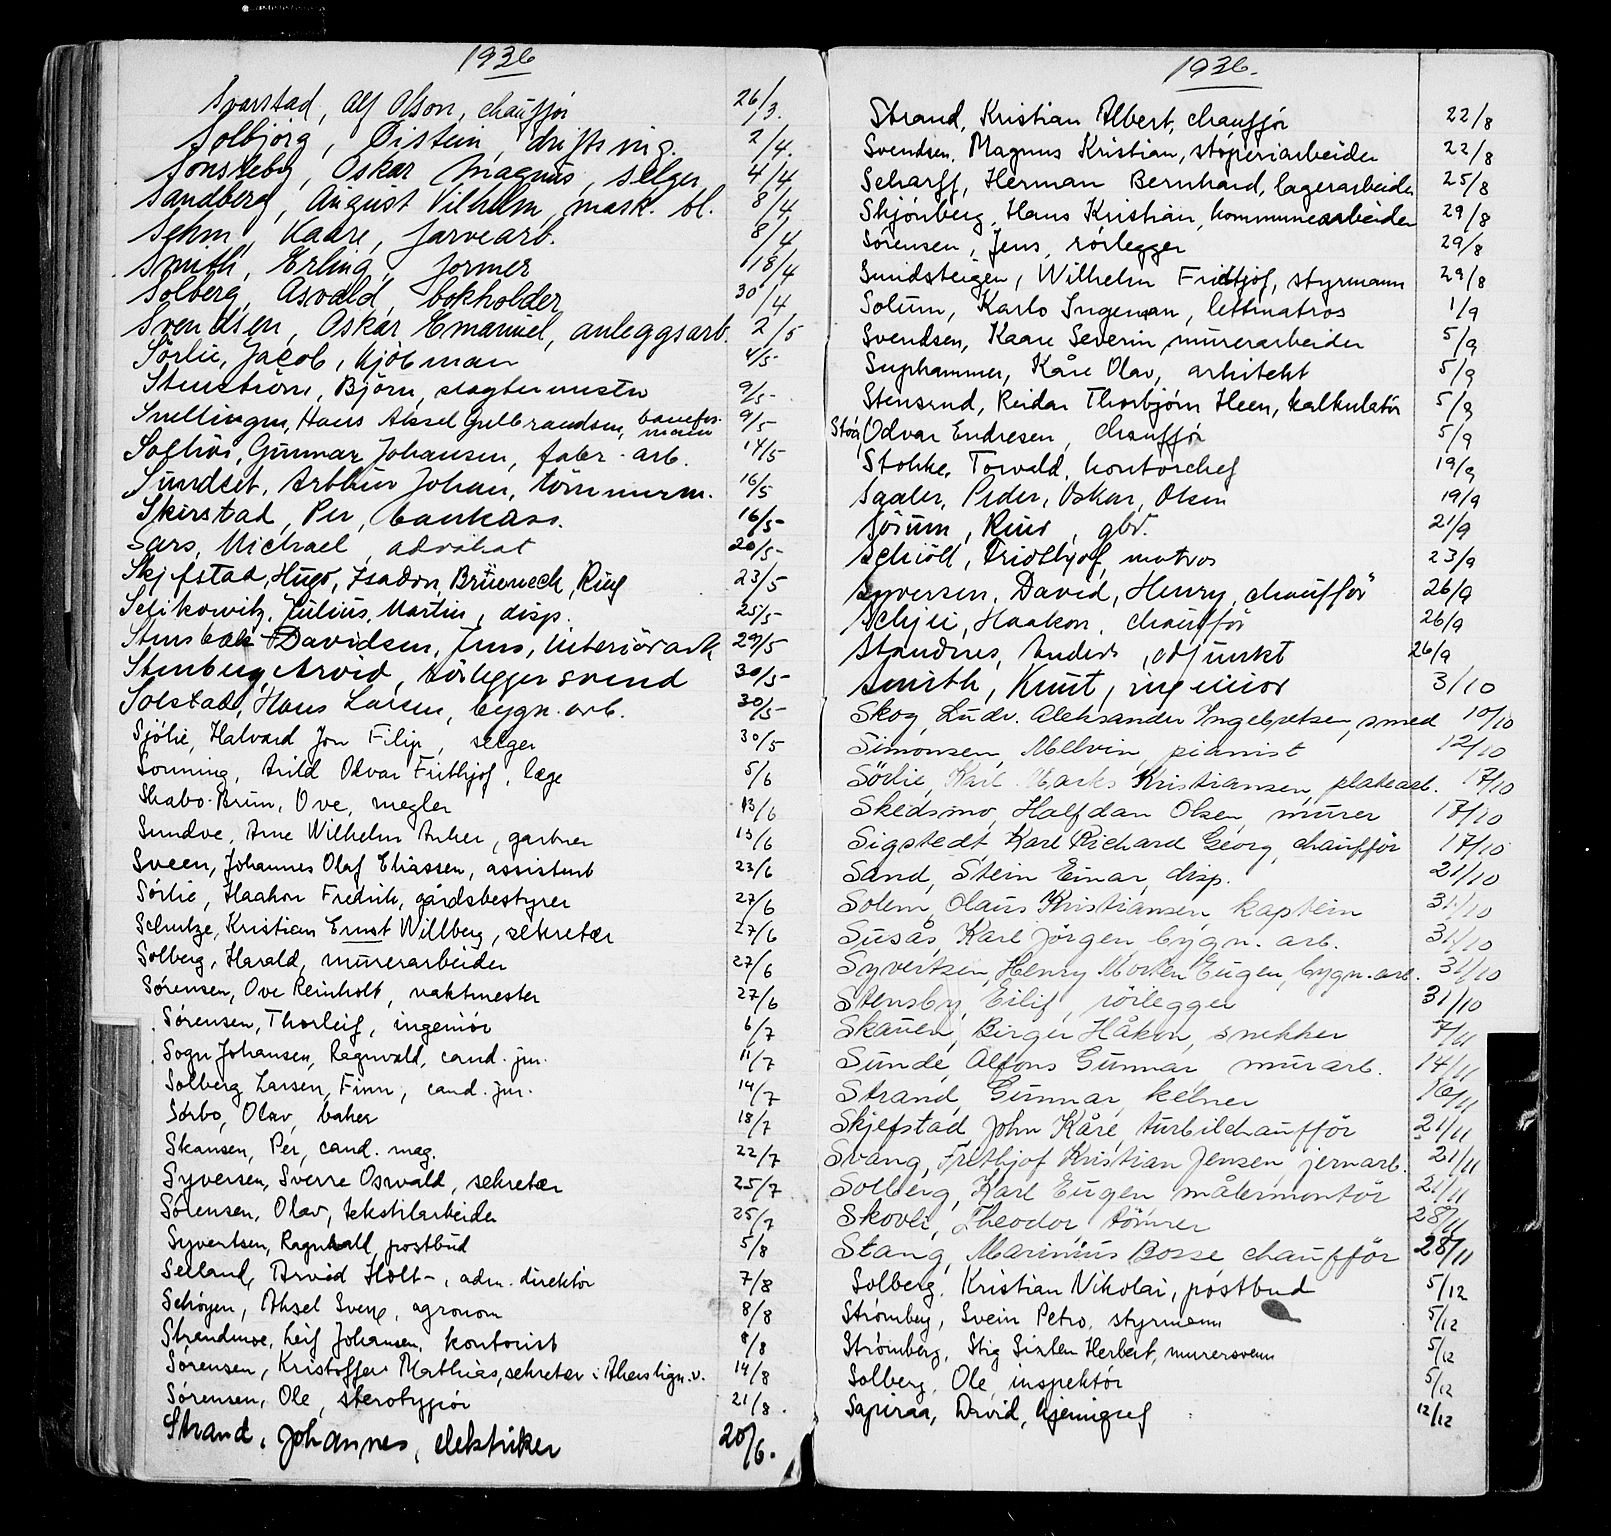 1936
Svarstad, Alf Olson, chauffør 26/3.
Solbjørg, Øistein, drifts ing. 2/4.
Sønsteby, Oskar Magnus, selger 4/4
Sandberg, August Vilhelm, mask. bl. 8/4
Sehm, Kaare, farvearb. 8/4
Smith, Erling, former 18/4
Solberg, Asvald, bokholder 30/4
Svendsen, Oskar Emanuel, anleggsarb. 2/5
Sörlie, Jacob, kjöbman 4/5
Stenström, Björn, slagtermester 9/5
Snellingen, Hans Aksel Gulbrandsen, banefor-mann 9/5
Gunnar Johansen, fabr. arb. 14/5
Sundset, Arthur Johan, tömmerm. 16/5
Skirstad, Per, bankass. 16/5
Sars, Michael, advokat 20/5
Skjefstad, Hugo, Isadon, Brünech, Ring 23/5
Selikowitz, Julius, Martin, disp. 25/5
Stensbak Davidsen, Jens, interiörark 29/5
Stenberg, Arvid, rörleggersvend 30/5
Solstad, Hans Larsen, bygn. arb. 30/5
Sjölie, Halvard Jon Filip, selger 30/5
Sonning, Arild Odvar Frithjof, læge 5/6
Skabo-Brun, Ove, megler 13/6
Sundve, Arne Wilhelm Anker, gartner 13/6
Sveen, Johannes Olaf Eliassen, assistent 23/6
Sørlie, Haakon Fredrik, gårdsbestyrer 27/6
Schultze, Kristian Ernst Willberg, sekretær 27/6
Solberg, Harald, murerarbeider 27/6
Sørensen, Ove Reinholt, vaktmester 27/6
Sørensen, Thorleif, ingeniør 6/7
Sogn Johansen, Ragnvald, cand. jur. 11/7
Solberg Larsen, Finn, cand. jur. 14/7
Sørbo, Olav, baker 18/7
Skansen, Per, cand. mag. 22/7
Syversen, Sverre Oswald, sekretær 25/7
Sørensen, Olav, tekstilarbeider 25/7
Syvertsen, Ragnvald, postbud 5/8
Selland, Arvid Holt-, adm. direktør 7/8
Schøyen, Aksel Sveng, agronom 8/8
Strandmoe, Leif Johansen, kontorist 8/8
Sørensen, Kristoffer Mathias, sekretær i Akers lign.v. 14/8
Sørensen, Ole, sterotypør 21/8.
Strand, Johannes, elektriker 20/6.
1936.
Strand, Kristian Albert, chauffør 22/8
Svendsen, Magnus Kristian, støperiarbeider 22/8
Scharff, Herman Bernhard, lagerarbeider 25/8
Skjønberg, Hans Kristian, kommunearbeider 29/8
Sørensen, Jens, rørlegger 29/8
Smidsteigen, Wilhelm Fridtjof, styrmann 29/8
Solum, Karlo Ingeman, lettmatros 1/9
Svendsen, Kaare Severin, murerarbeider 5/9
Suphammer, Kåre Olav, arkitekt 5/9
Stensrud, Reidar Thorbjørn Heen, kalkulatør 5/9
Støa, Odvar Endresen, chauffør 5/9
Stokke, Torvald, kontorchef 19/9
Saaler, Peder, Oskar, Olsen 19/9
Sörum, Knut, gbr. 21/9
Schiöll, Fridthjof, matros 23/9
Syversen, David, Henry, chaufför 26/9
Schjie, Haakon, chaufför 26/9
Standnes, Anders, adjunkt 26/9
Smith, Knut, ingeniör 3/10
Skog, Ludv. Aleksander Ingebretsen, smed 10/10
Simonsen, Melvin, pianist 12/10
Sörlie, Karl Marks Kristiansen, platearb. 17/10
Skedsmo, Halfdan Olsen, murer 17/10
Sigstedt Karl Richard Georg, chaufför 17/10
Sand, Stein Einar, disp. 21/10
Solem, Olaus Kristiansen, kaptein 31/10
Susås, Karl Jörgen bygn. arb. 31/10
Syvertsen, Henry Morten Eugen, bygn. arb. 31/10
Stensby, Eilif, rörlegger 31/10
Skauen, Birger Håkon, snekker 7/11
Sunde, Alfons Gunnar murarb. 14/11
Strand, Gunnar, kelner 16/11
Skjefstad, John Kåre, turbilchaufför 21/11
Svang, Frithjof Kristian Jensen, jernarb. 21/11
Solberg, Karl Eugen målermontör 21/11
Skovli, Theodor tömrer 28/11
Stang, Marinius Bosse chaufför 28/11
Solberg, Kristian Nikolai, postbud 5/12
Strømberg, Svein Petro, styrmann 5/12
Strømberg, Stig Sixten Herbert, murersvenn 5/12
Solberg, Ole, inspektør 5/12
Sapiraa, David, 12/12